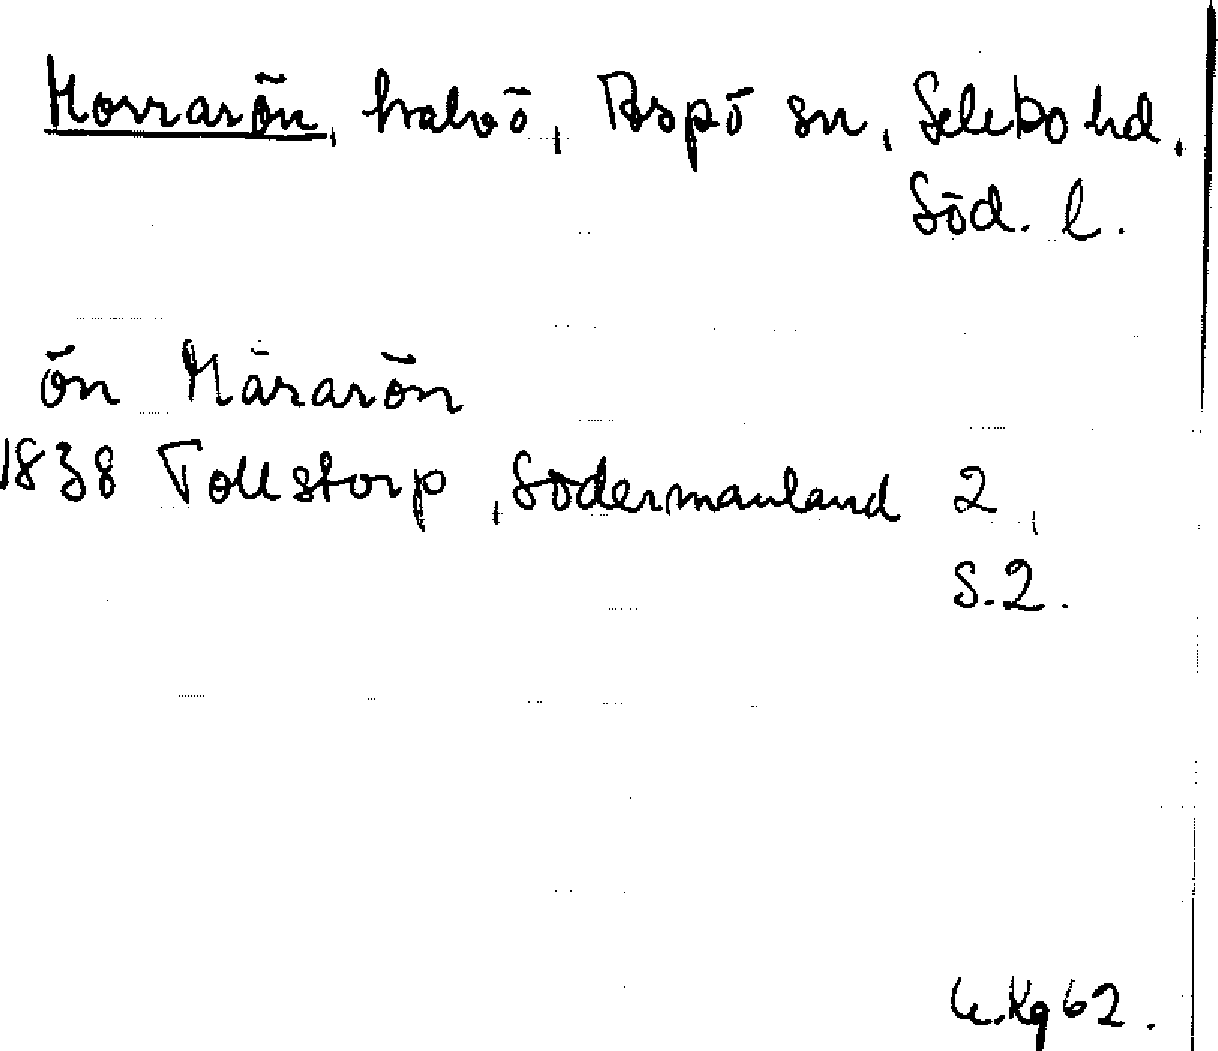 Horrarön, halvö, Aspö sn, Selebo hd,
Söd. l.
ön Hårarön
1838 Tollstorp, Södermanland 2,
S. 2.
Kg 62.